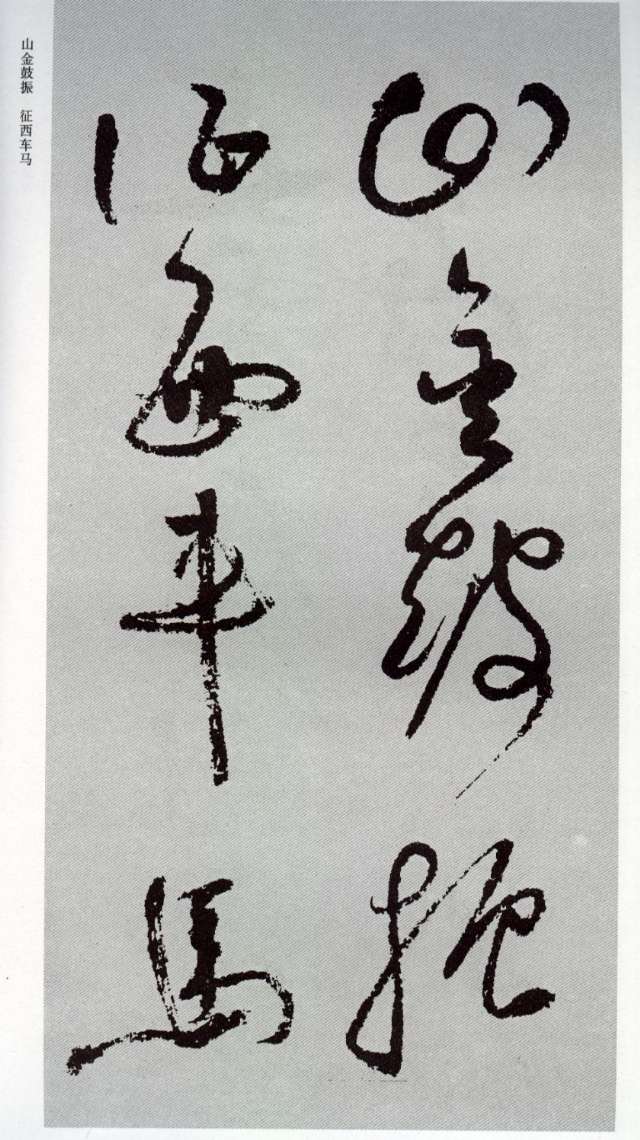 山金鼓振
征西车马
山金鼓振　征西车马